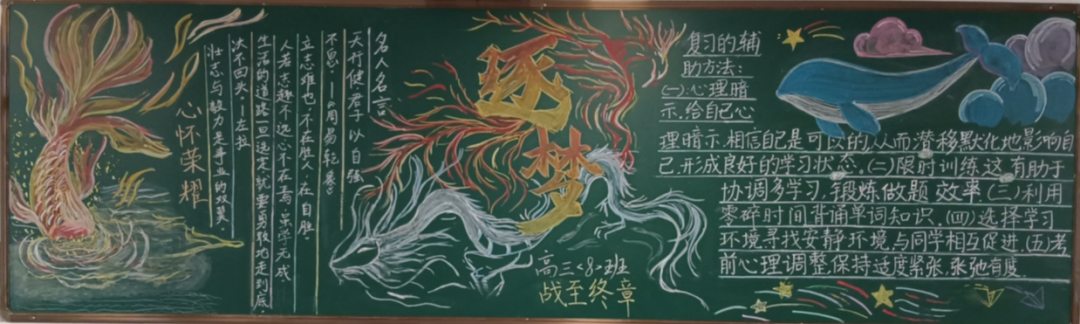 心怀荣耀
名人名言
天行健,君子以自强
不息。—《周易·乾·象》
立志难也,不在胜人,在自胜。
人若志趣不远,心不在焉,虽学无成。
生活的道路一旦选定,就要勇敢地走到底,
决不回头。—左拉
壮志与毅力是事业的双翼。
逐梦
高三<8>班
战至终章
复习的辅
助方法:
(一)心理暗
示,给自己心
理暗示,相信自己是可以的,从而潜移默化地影响自
己,形成良好的学习状态。(二)限时训练,这有助于
协调多学习,锻炼做题效率(三)利用
零碎时间背诵单词知识.(四)选择学习
环境寻找安静环境,与同学相互促进.(五)考
前心理调整,保持适度紧张,张弛有度.